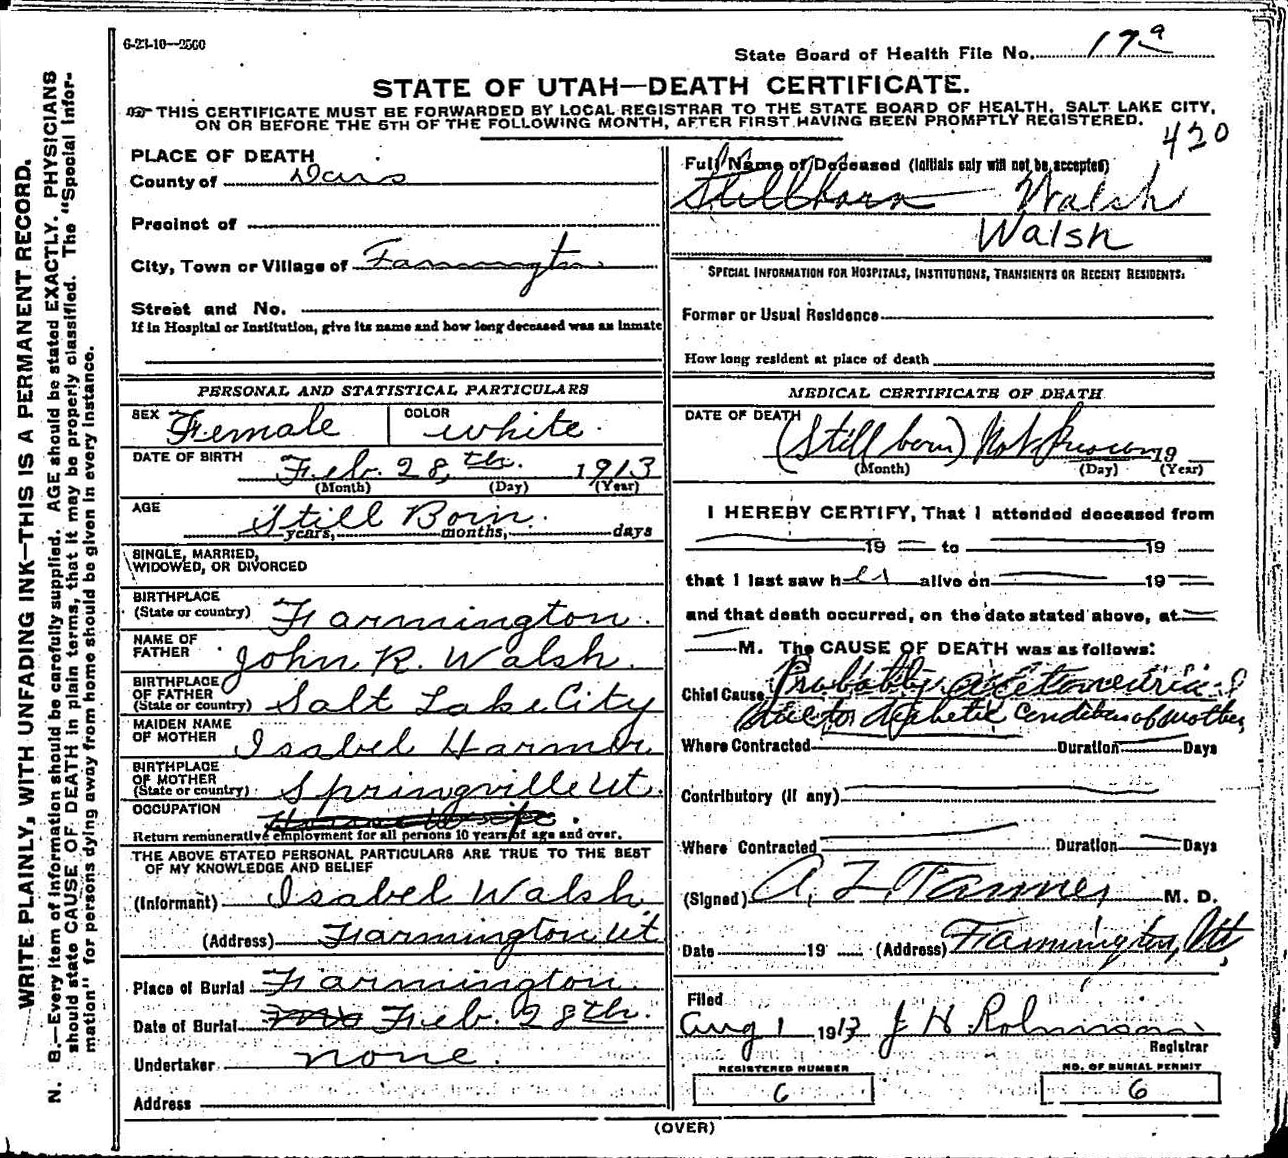 6-23-10—2500
State Board of Health File No. 17a
STATE OF UTAH—DEATH CERTIFICATE.
THIS CERTIFICATE MUST BE FORWARDED BY LOCAL REGISTRAR TO THE STATE BOARD OF HEALTH, SALT LAKE CITY,
ON OR BEFORE THE 5TH OF THE FOLLOWING MONTH, AFTER FIRST HAVING BEEN PROMPTLY REGISTERED.
420
WRITE PLAINLY, WITH UNFADING INK—THIS IS A PERMANENT RECORD.
N. B.—Every item of information should be carefully supplied. AGE should be stated EXACTLY. PHYSICIANS
should state CAUSE OF DEATH in plain terms, that it may be properly classified. The "Special Infor-
mation" for persons dying away from home should be given in every instance.
PLACE OF DEATH
County of Davis
Precinct of
City, Town or Village of Farmington
Street and No.
If in Hospital or Institution, give its name and how long deceased was an inmate
PERSONAL AND STATISTICAL PARTICULARS
SEX Female COLOR white.
DATE OF BIRTH Feb. 28, th. 1913
(Month) (Day) (Year)
AGE Still Born.
years, months, days
SINGLE, MARRIED,
WIDOWED, OR DIVORCED
BIRTHPLACE
(State or country) Farmington.
NAME OF
FATHER John R. Walsh.
BIRTHPLACE
OF FATHER
(State or country) Salt Lake City
MAIDEN NAME
OF MOTHER Isabel Harmon
BIRTHPLACE
OF MOTHER
(State or country) Springville Ut.
OCCUPATION House Wife.
Return remunerative employment for all persons 10 years of age and over.
THE ABOVE STATED PERSONAL PARTICULARS ARE TRUE TO THE BEST
OF MY KNOWLEDGE AND BELIEF
(Informant) Isabel Walsh
(Address) Farmington Ut
Place of Burial Farmington.
Date of Burial Feb. 28th.
Undertaker none.
Address
Full Name of Deceased (Initials only will not be accepted)
Stillborn Walsh
Walsh
SPECIAL INFORMATION FOR HOSPITALS, INSTITUTIONS, TRANSIENTS OR RECENT RESIDENTS:
Former or Usual Residence
How long resident at place of death
MEDICAL CERTIFICATE OF DEATH
DATE OF DEATH (Still born) Not 19
(Month) (Day) (Year)
I HEREBY CERTIFY, That I attended deceased from
19 to 19
that I last saw h er alive on 19
and that death occurred, on the date stated above, at
M. The CAUSE OF DEATH was as follows:
Chief Cause Probably acetoneuria
due to diabetic condition of mother
Where Contracted Duration Days
Contributory (if any)
Where Contracted Duration Days
(Signed) A. Z. Tanner M. D.
Date 19 (Address) Farmington, Ut,
Filed
Aug 1 1913 J H Robinson
Registrar
REGISTERED NUMBER
6
NO. OF BURIAL PERMIT
6
(OVER)